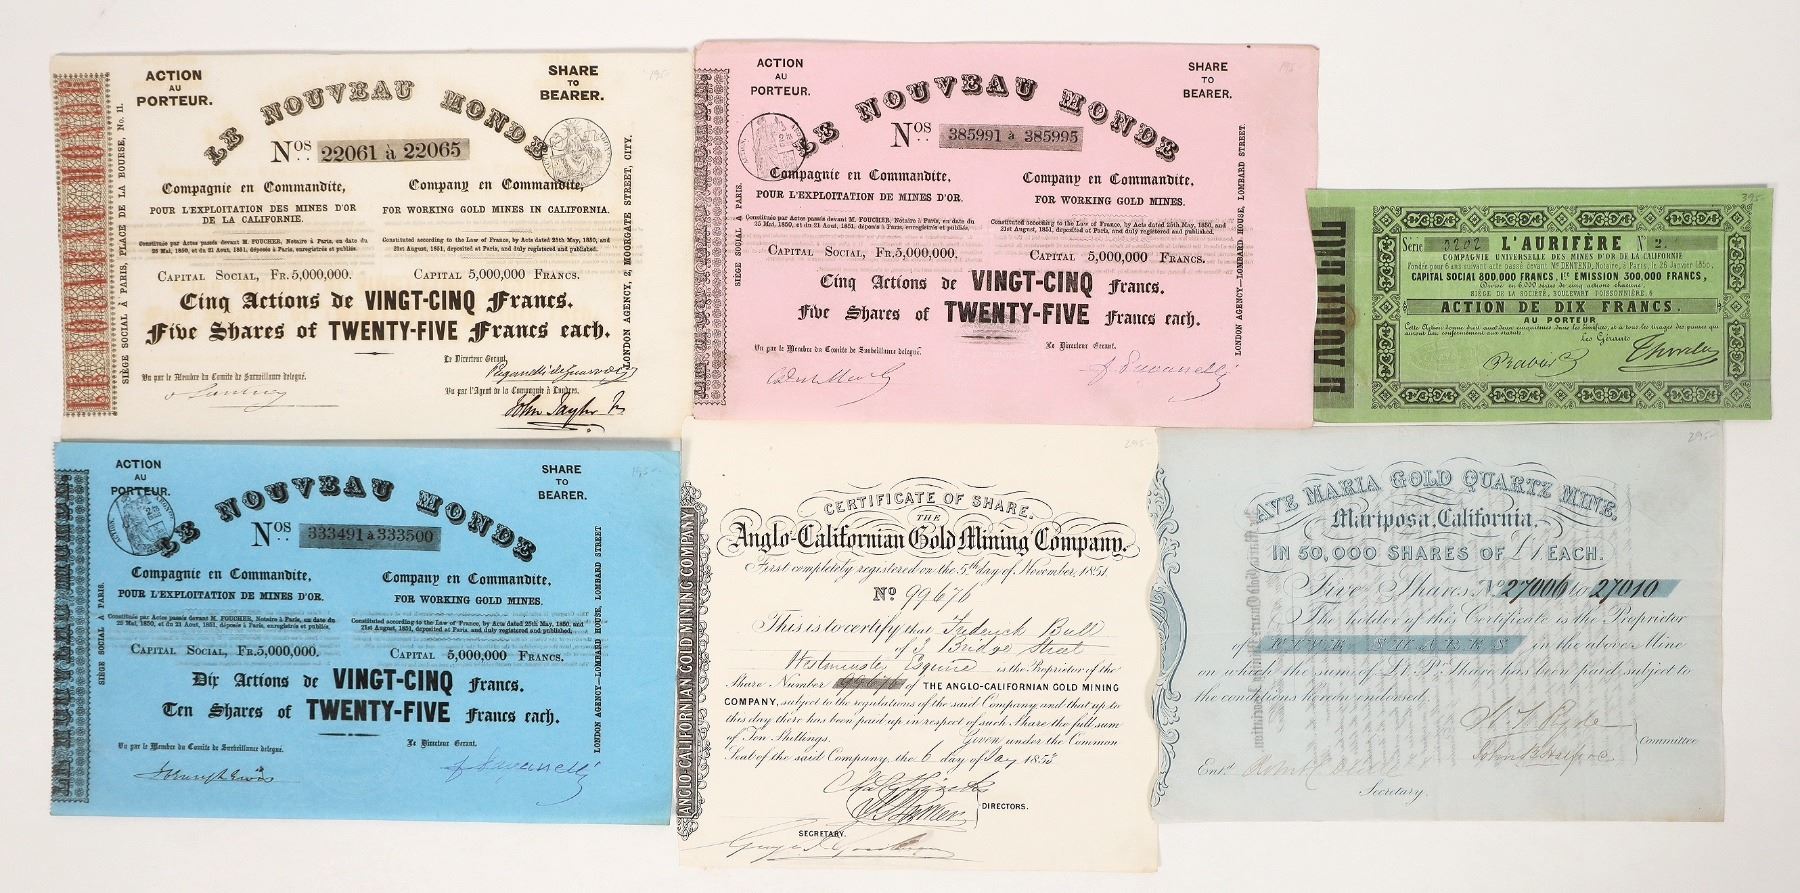 ACTION
AU
PORTEUR.
SHARE
TO
BEARER.
195-
LE NOUVEAU MONDE
Nos 22061 à 22065
Compagnie en Commandite,
POUR L'EXPLOITATION DES MINES D'OR
DE LA CALIFORNIE.
Constituée par Actes passés devant M. FOUCHER, Notaire à Paris, en date du
25 Mai, 1850, et du 21 Aout, 1851, déposés à Paris, enregistrés et publiés.
CAPITAL SOCIAL, FR. 5,000,000.
Company en Commandite,
FOR WORKING GOLD MINES IN CALIFORNIA.
Constituted according to the Law of France, by Acts dated 25th May, 1850, and
21st August, 1851, deposited at Paris, and duly registered and published.
CAPITAL 5,000,000 FRANCS.
Cinq Actions de VINGT-CINQ Francs.
Five Shares of TWENTY-FIVE Francs each.
Vu par le Membre du Comité de Surveillance délégué.
Le Directeur Gérant,
Vu par l'Agent de la Compagnie à Londres.
John Taylor
SIÈGE SOCIAL À PARIS, PLACE DE LA BOURSE, No. 11.
LONDON AGENCY, 2, MOORGATE STREET, CITY.
ACTION
AU
PORTEUR.
SHARE
TO
BEARER.
195-
LE NOUVEAU MONDE
Nos 385991 à 385995
Compagnie en Commandite,
POUR L'EXPLOITATION DE MINES D'OR.
Constituée par Actes passés devant M. FOUCHER, Notaire à Paris, en date du
25 Mai, 1850, et du 21 Aout, 1851, déposés à Paris, enregistrés et publiés.
CAPITAL SOCIAL, FR. 5,000,000.
Company en Commandite,
FOR WORKING GOLD MINES.
Constituted according to the Law of France, by Acts dated 25th May, 1850, and
21st August, 1851, deposited at Paris, and duly registered and published.
CAPITAL 5,000,000 FRANCS.
Cinq Actions de VINGT-CINQ Francs.
Five Shares of TWENTY-FIVE Francs each.
Vu par le Membre du Comité de Surveillance délégué.
Le Directeur Gérant.
SIÈGE SOCIAL À PARIS.
LONDON AGENCY—LOMBARD HOUSE, LOMBARD STREET.
395-
L'AURIFÈRE
Série 0202 L'AURIFÈRE No 2.
COMPAGNIE UNIVERSELLE DES MINES D'OR DE LA CALIFORNIE
Fondée pour 6 ans suivant acte passé devant Me DENTEND, Notaire, à Paris, le 26 Janvier 1850,
CAPITAL SOCIAL 800,000 FRANCS, 1re EMISSION 300,000 FRANCS,
Divisée en 6,000 séries de cinq actions chacune.
SIÈGE DE LA SOCIÉTÉ, BOULEVART POISSONNIÈRE, 6
ACTION DE DIX FRANCS.
AU PORTEUR
Les Gérants
ACTION
AU
PORTEUR.
SHARE
TO
BEARER.
195-
LE NOUVEAU MONDE
Nos 333491 à 333500
Compagnie en Commandite,
POUR L'EXPLOITATION DE MINES D'OR.
Constituée par Actes passés devant M. FOUCHER, Notaire à Paris, en date du
25 Mai, 1850, et du 21 Aout, 1851, déposés à Paris, enregistrés et publiés.
CAPITAL SOCIAL, FR. 5,000,000.
Company en Commandite,
FOR WORKING GOLD MINES.
Constituted according to the Law of France, by Acts dated 25th May, 1850, and
21st August, 1851, deposited at Paris, and duly registered and published.
CAPITAL 5,000,000 FRANCS.
Dix Actions de VINGT-CINQ Francs.
Ten Shares of TWENTY-FIVE Francs each.
Vu par le Membre du Comité de Surveillance délégué.
Le Directeur Gérant.
SIÈGE SOCIAL À PARIS.
LONDON AGENCY—LOMBARD HOUSE, LOMBARD STREET
295-
ANGLO-CALIFORNIAN GOLD MINING COMPANY
CERTIFICATE OF SHARE.
THE
Anglo-Californian Gold Mining Company.
First completely registered on the 5th day of November, 1851.
No 99676
This is to certify that Frederick Bull
of Bridge Street
Westminster Esquire is the Proprietor of the
Share Number 99676 of THE ANGLO-CALIFORNIAN GOLD MINING
COMPANY, subject to the regulations of the said Company, and that up to
this day there has been paid up in respect of such Share the full sum
of Ten Shillings. Given under the Common
Seal of the said Company, the 6 day of Jany 1853
DIRECTORS.
SECRETARY.
295-
AVE MARIA GOLD QUARTZ MINE.
Mariposa, California,
IN 50,000 SHARES OF £1 EACH.
Five Shares No 27006 to 27010
The holder of this Certificate is the Proprietor
of FIVE SHARES in the above Mine
on which the sum of £1 P. Share has been paid subject to
the conditions hereon endorsed.
Committee
Entd.
Secretary.